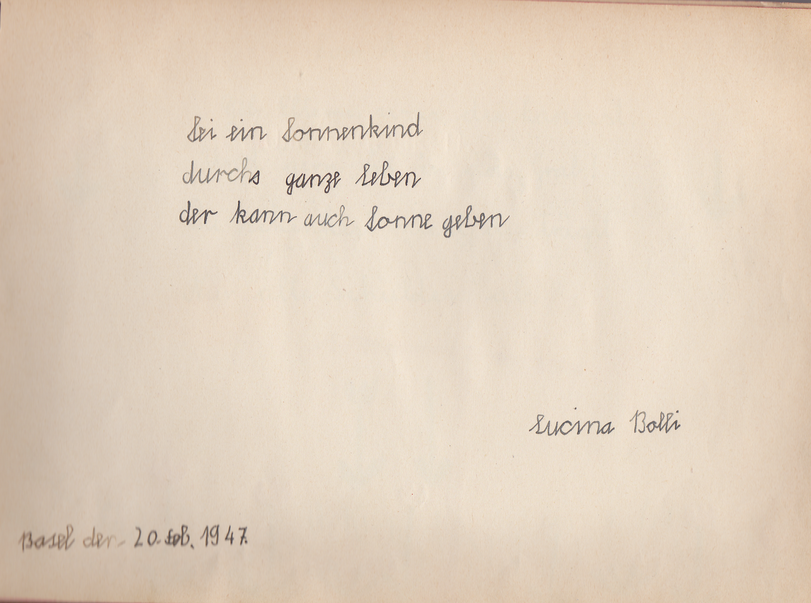 Sei ein Sonnenkind
durchs ganze Leben
der kann auch Sonne geben
Lucina Bolli
Basel den 20. Feb. 1947.